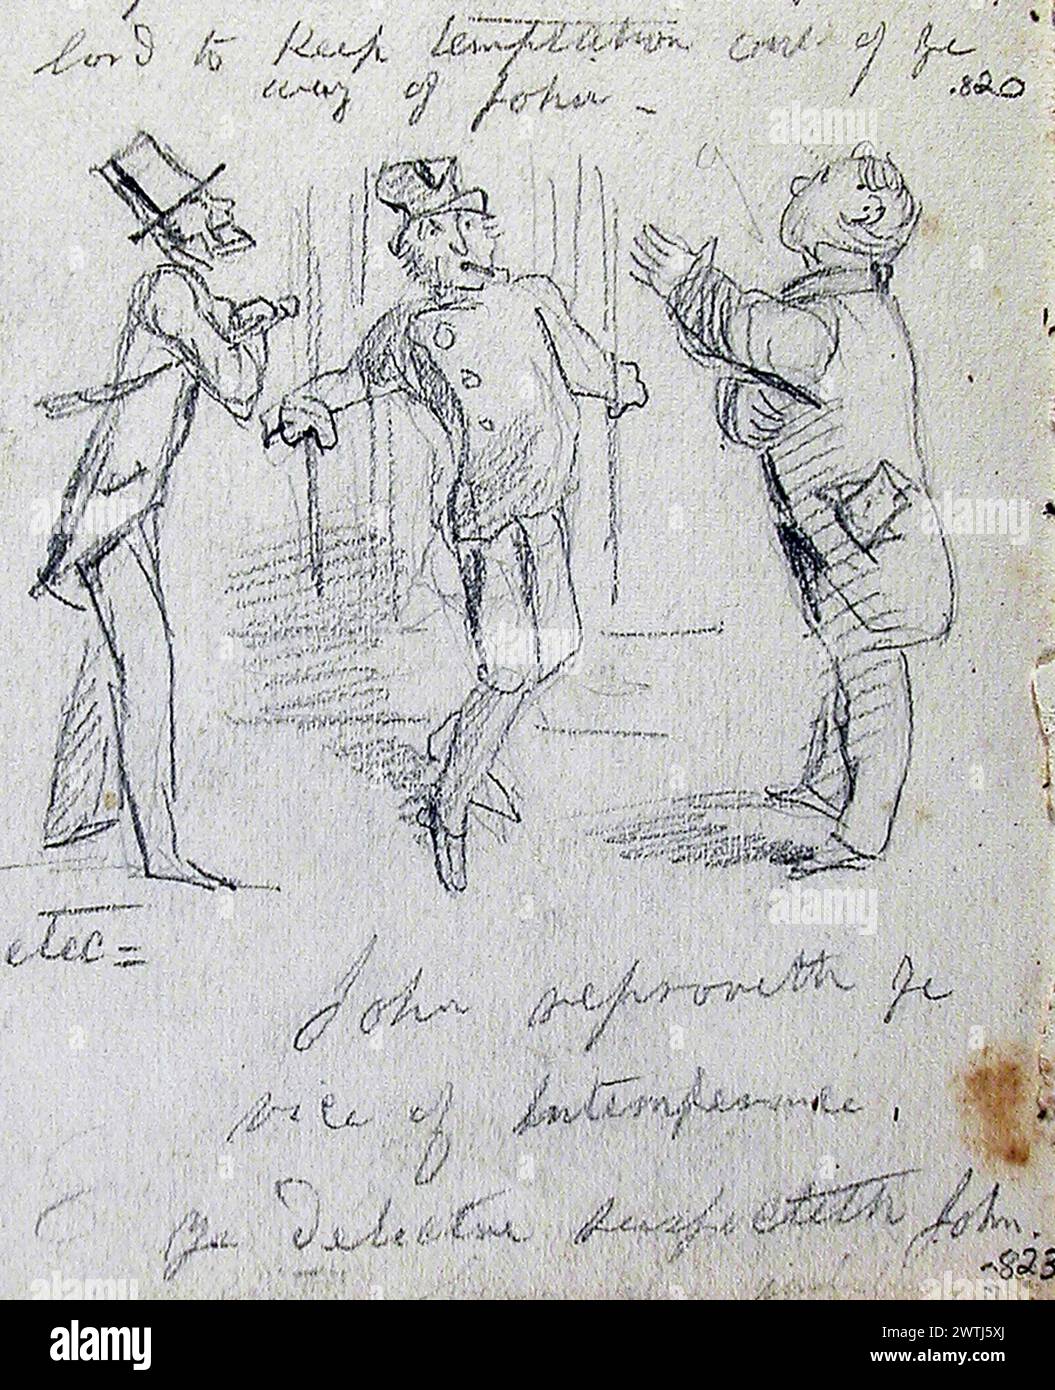 lord to keep temptation out of ye
way of John -
.820
etec =
John reproveth ye
vice of Intemperance.
Ye Detective suspecteth John.
-823
alamy
Image ID: 2WTJ5XJ
www.alamy.com